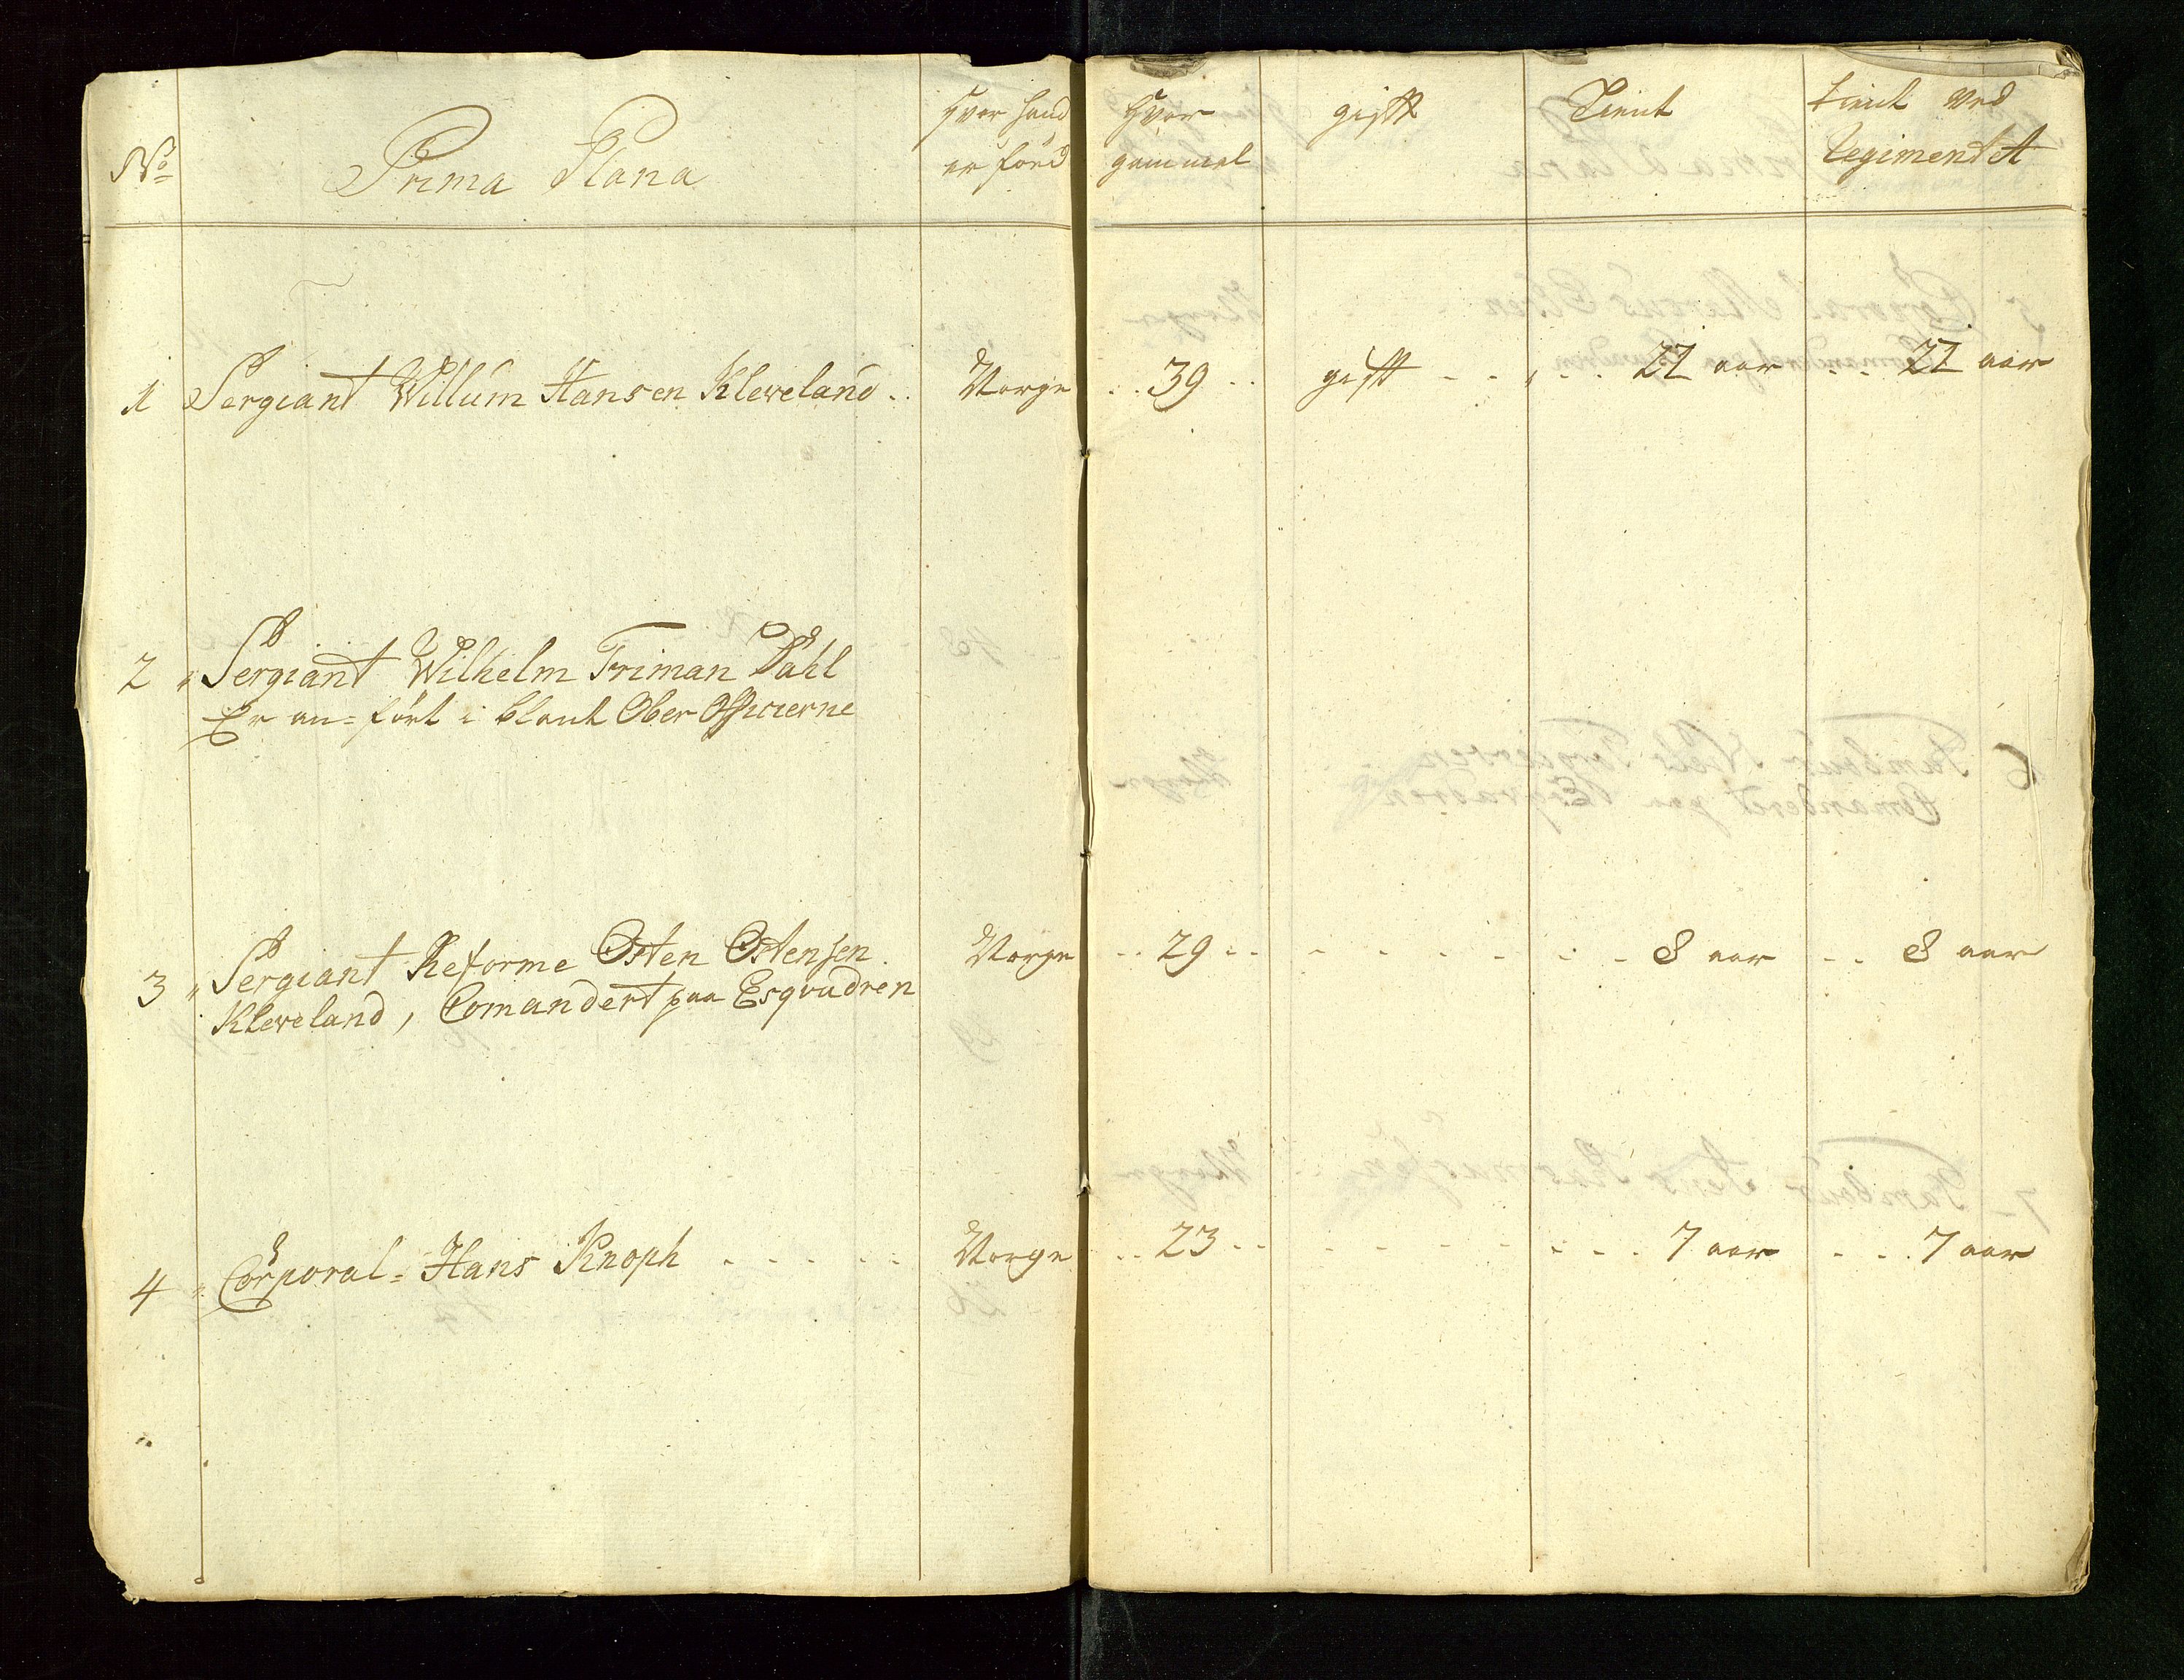 No
Prima Plana
Hvor hand er föed
Hvor gammel
gift
Tient
tient ved Regimentet
1 Sergiant Willum Hansen Kleveland .. Norge .. 39 .. gift - - „ . . 22 aar - . . 22 aar
2 „ Sergiant Wilhelm Friman Dahl
Er an=fört i blant Ober Officierne
3 „ Sergiant Reforme Osten Ostensen. Norge .. 29 .. - - - - - - 8 aar - .. 8 aar
Kleveland, Comandert paa Esqvadren
4 „ Corporal = Hans Knoph - - - - .. Norge .. 23 .. - - - - - - - - 7 aar - - . 7 aar